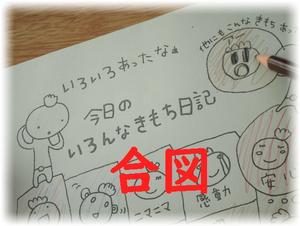 いろいろあったなぁ
他にもこんなきもちあっ
今日の
いろんなきもち日記
合図
ニマニマ
感動
安心